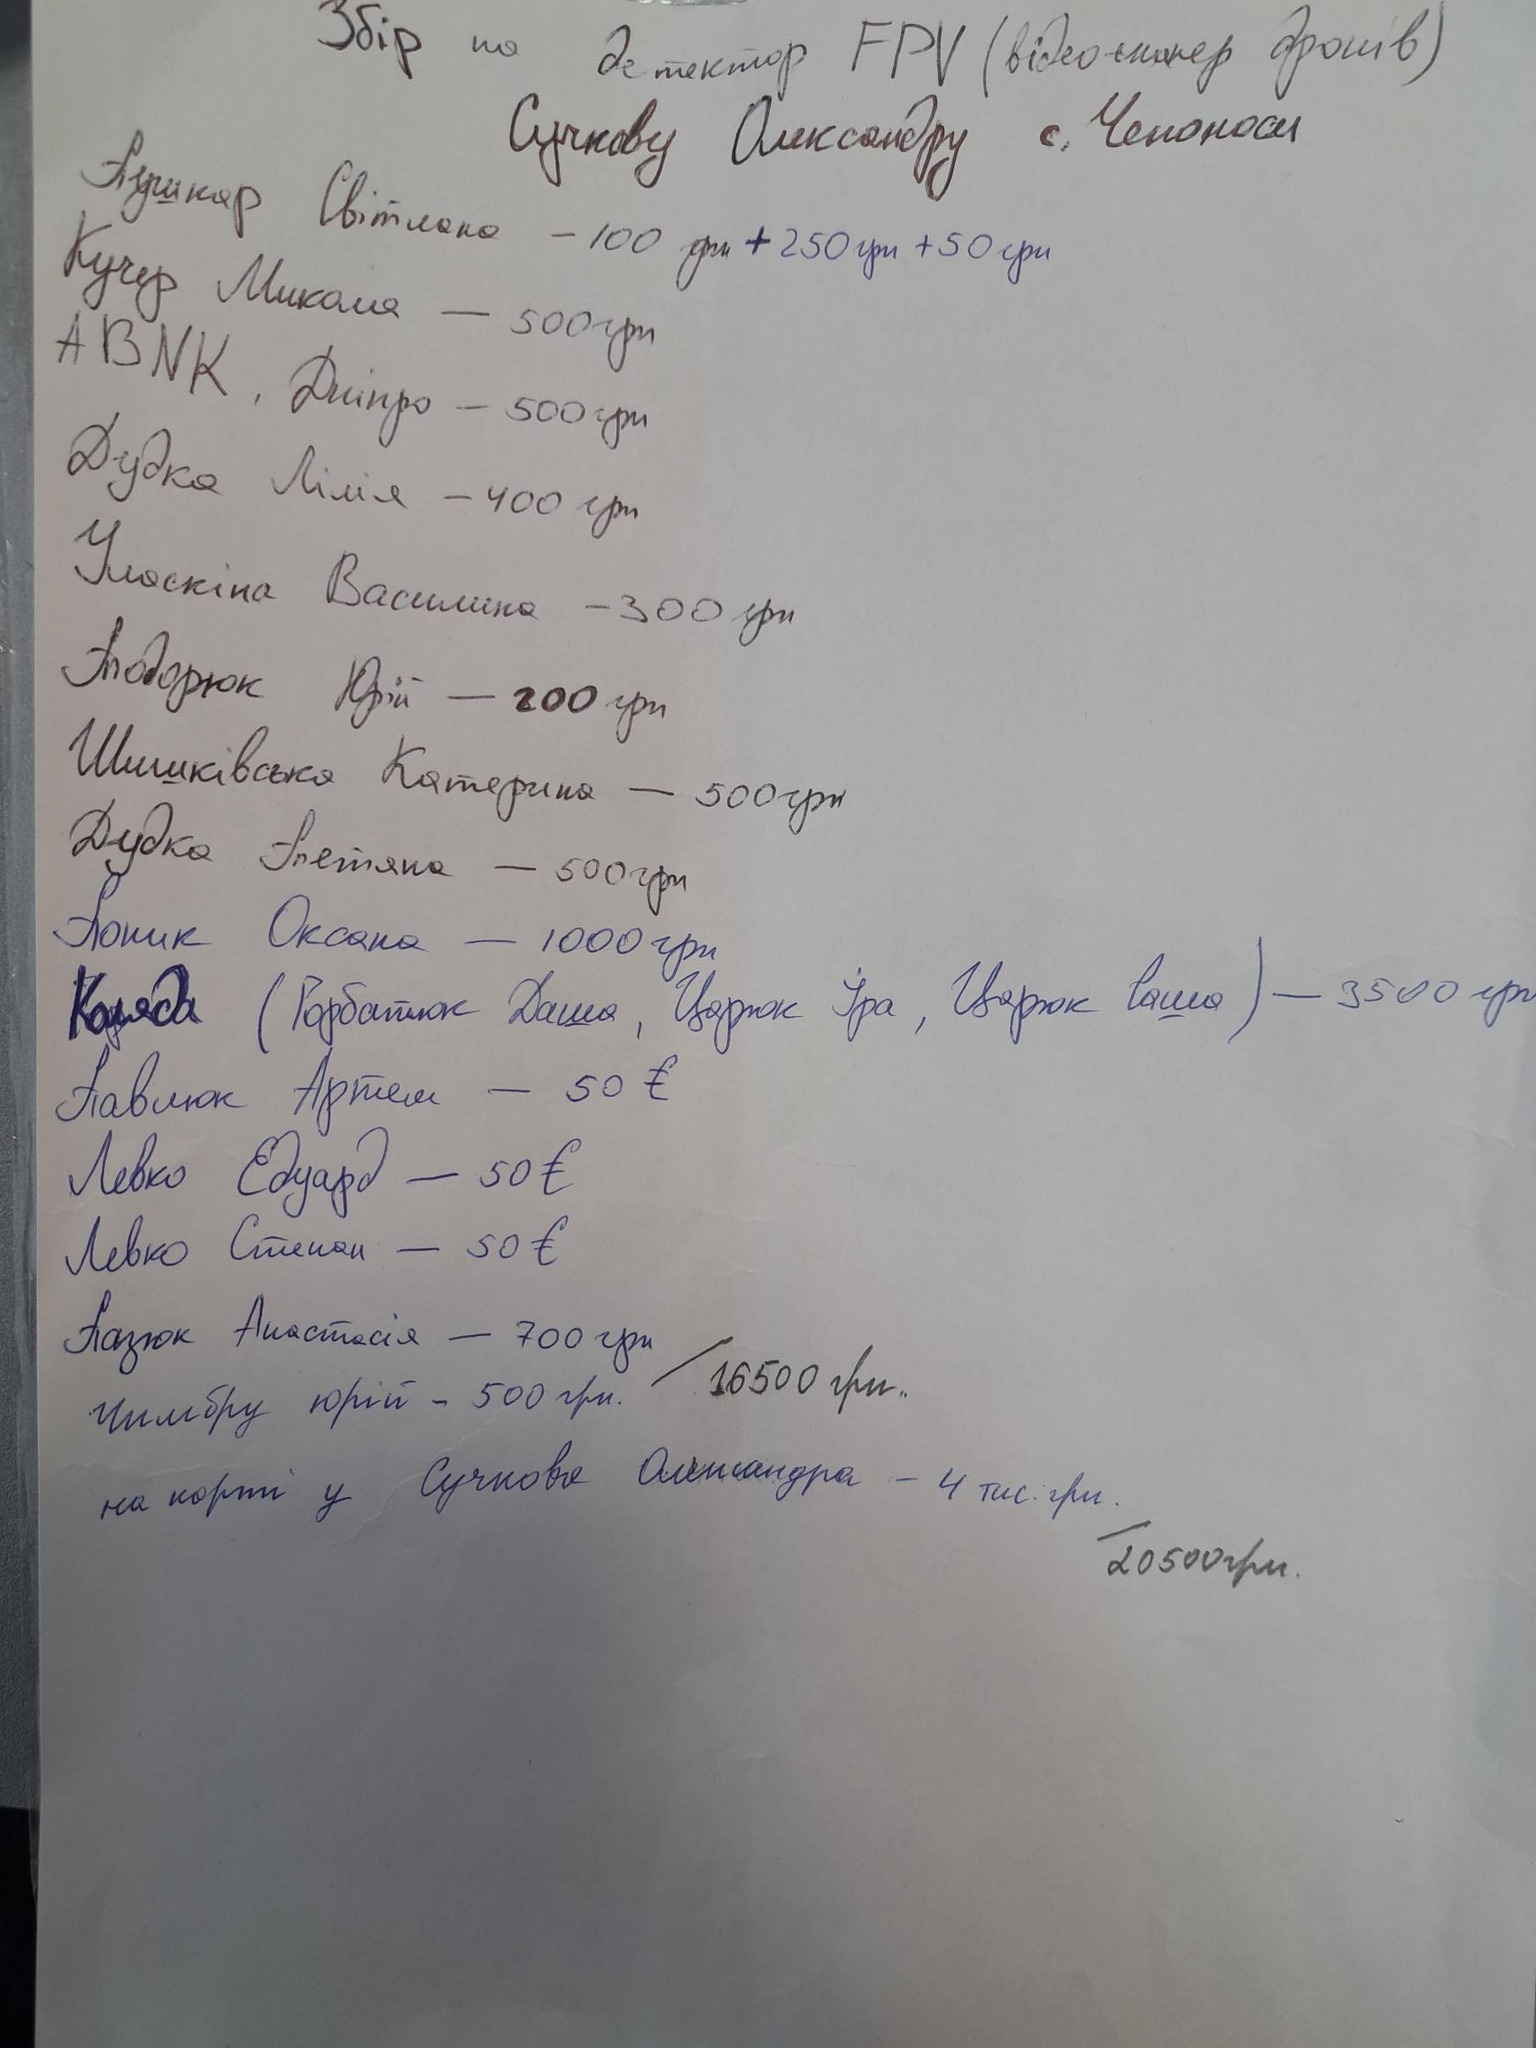 Збір на детектор FPV (відеосканер дронів)
Сучкову Олександру с. Чепоноси
Пушкар Світлана - 100 грн + 250 грн + 50 грн
Кучер Микола - 500 грн
ABNK, Дніпро - 500 грн
Дудка Лілія - 400 грн
Уласкіна Василина - 300 грн
Тодорюк Юрій - 200 грн
Шишківська Катерина - 500 грн
Дудка Тетяна - 500 грн
Попик Оксана - 1000 грн
Коляда (Горбатюк Даша, Царюк Іра, Царюк Саша) - 3500 грн
Павлюк Артем - 50 €
Левко Едуард - 50 €
Левко Степан - 50 €
Пазюк Анастасія - 700 грн
Чимбру Юрій - 500 грн. / 16500 грн.
на карті у Сучкова Олександра - 4 тис. грн.
/ 20500 грн.